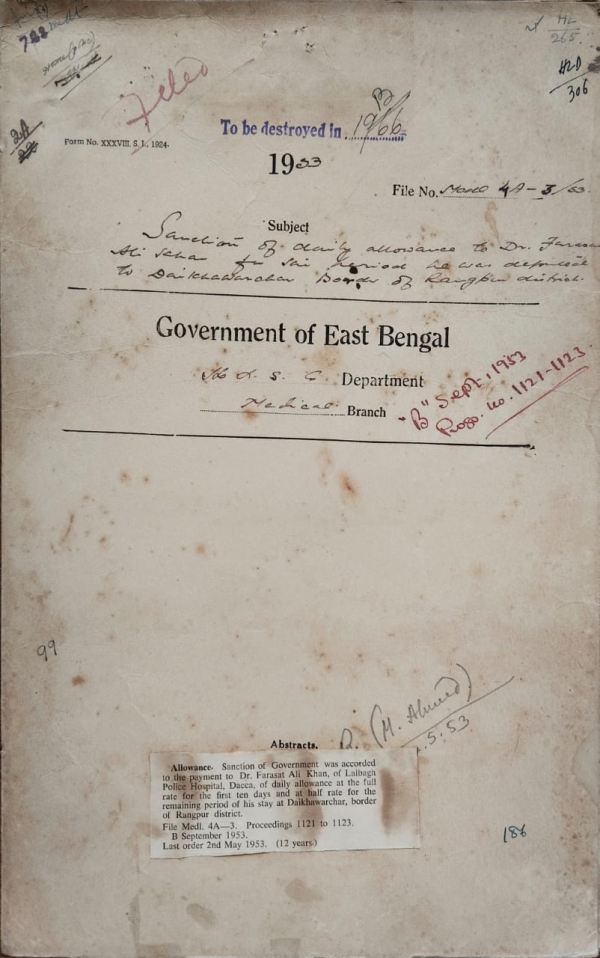 722 Medl
HL
265
HLD
306
Filed
B
To be destroyed in 1966
Form No. XXXVIII. S. I., 1924.
1953
File No. Medl 4A-3/53
Subject
Sanction of daily allowance to Dr. Farasat
Ali Khan for the period he was deputed
to Daikhawarchar Border of Rangpur district.
Government of East Bengal
Department
Medical Branch
"B" Sept. 1953
Progs. no. 1121-1123
99
(M. Ahmed)
.5.53
Abstracts.
Allowance. Sanction of Government was accorded
to the payment to Dr. Farasat Ali Khan, of Lalbagh
Police Hospital, Dacca, of daily allowance at the full
rate for the first ten days and at half rate for the
remaining period of his stay at Daikhawarchar, border
of Rangpur district.
File Medl. 4A—3. Proceedings 1121 to 1123.
B September 1953.
Last order 2nd May 1953. (12 years)
186